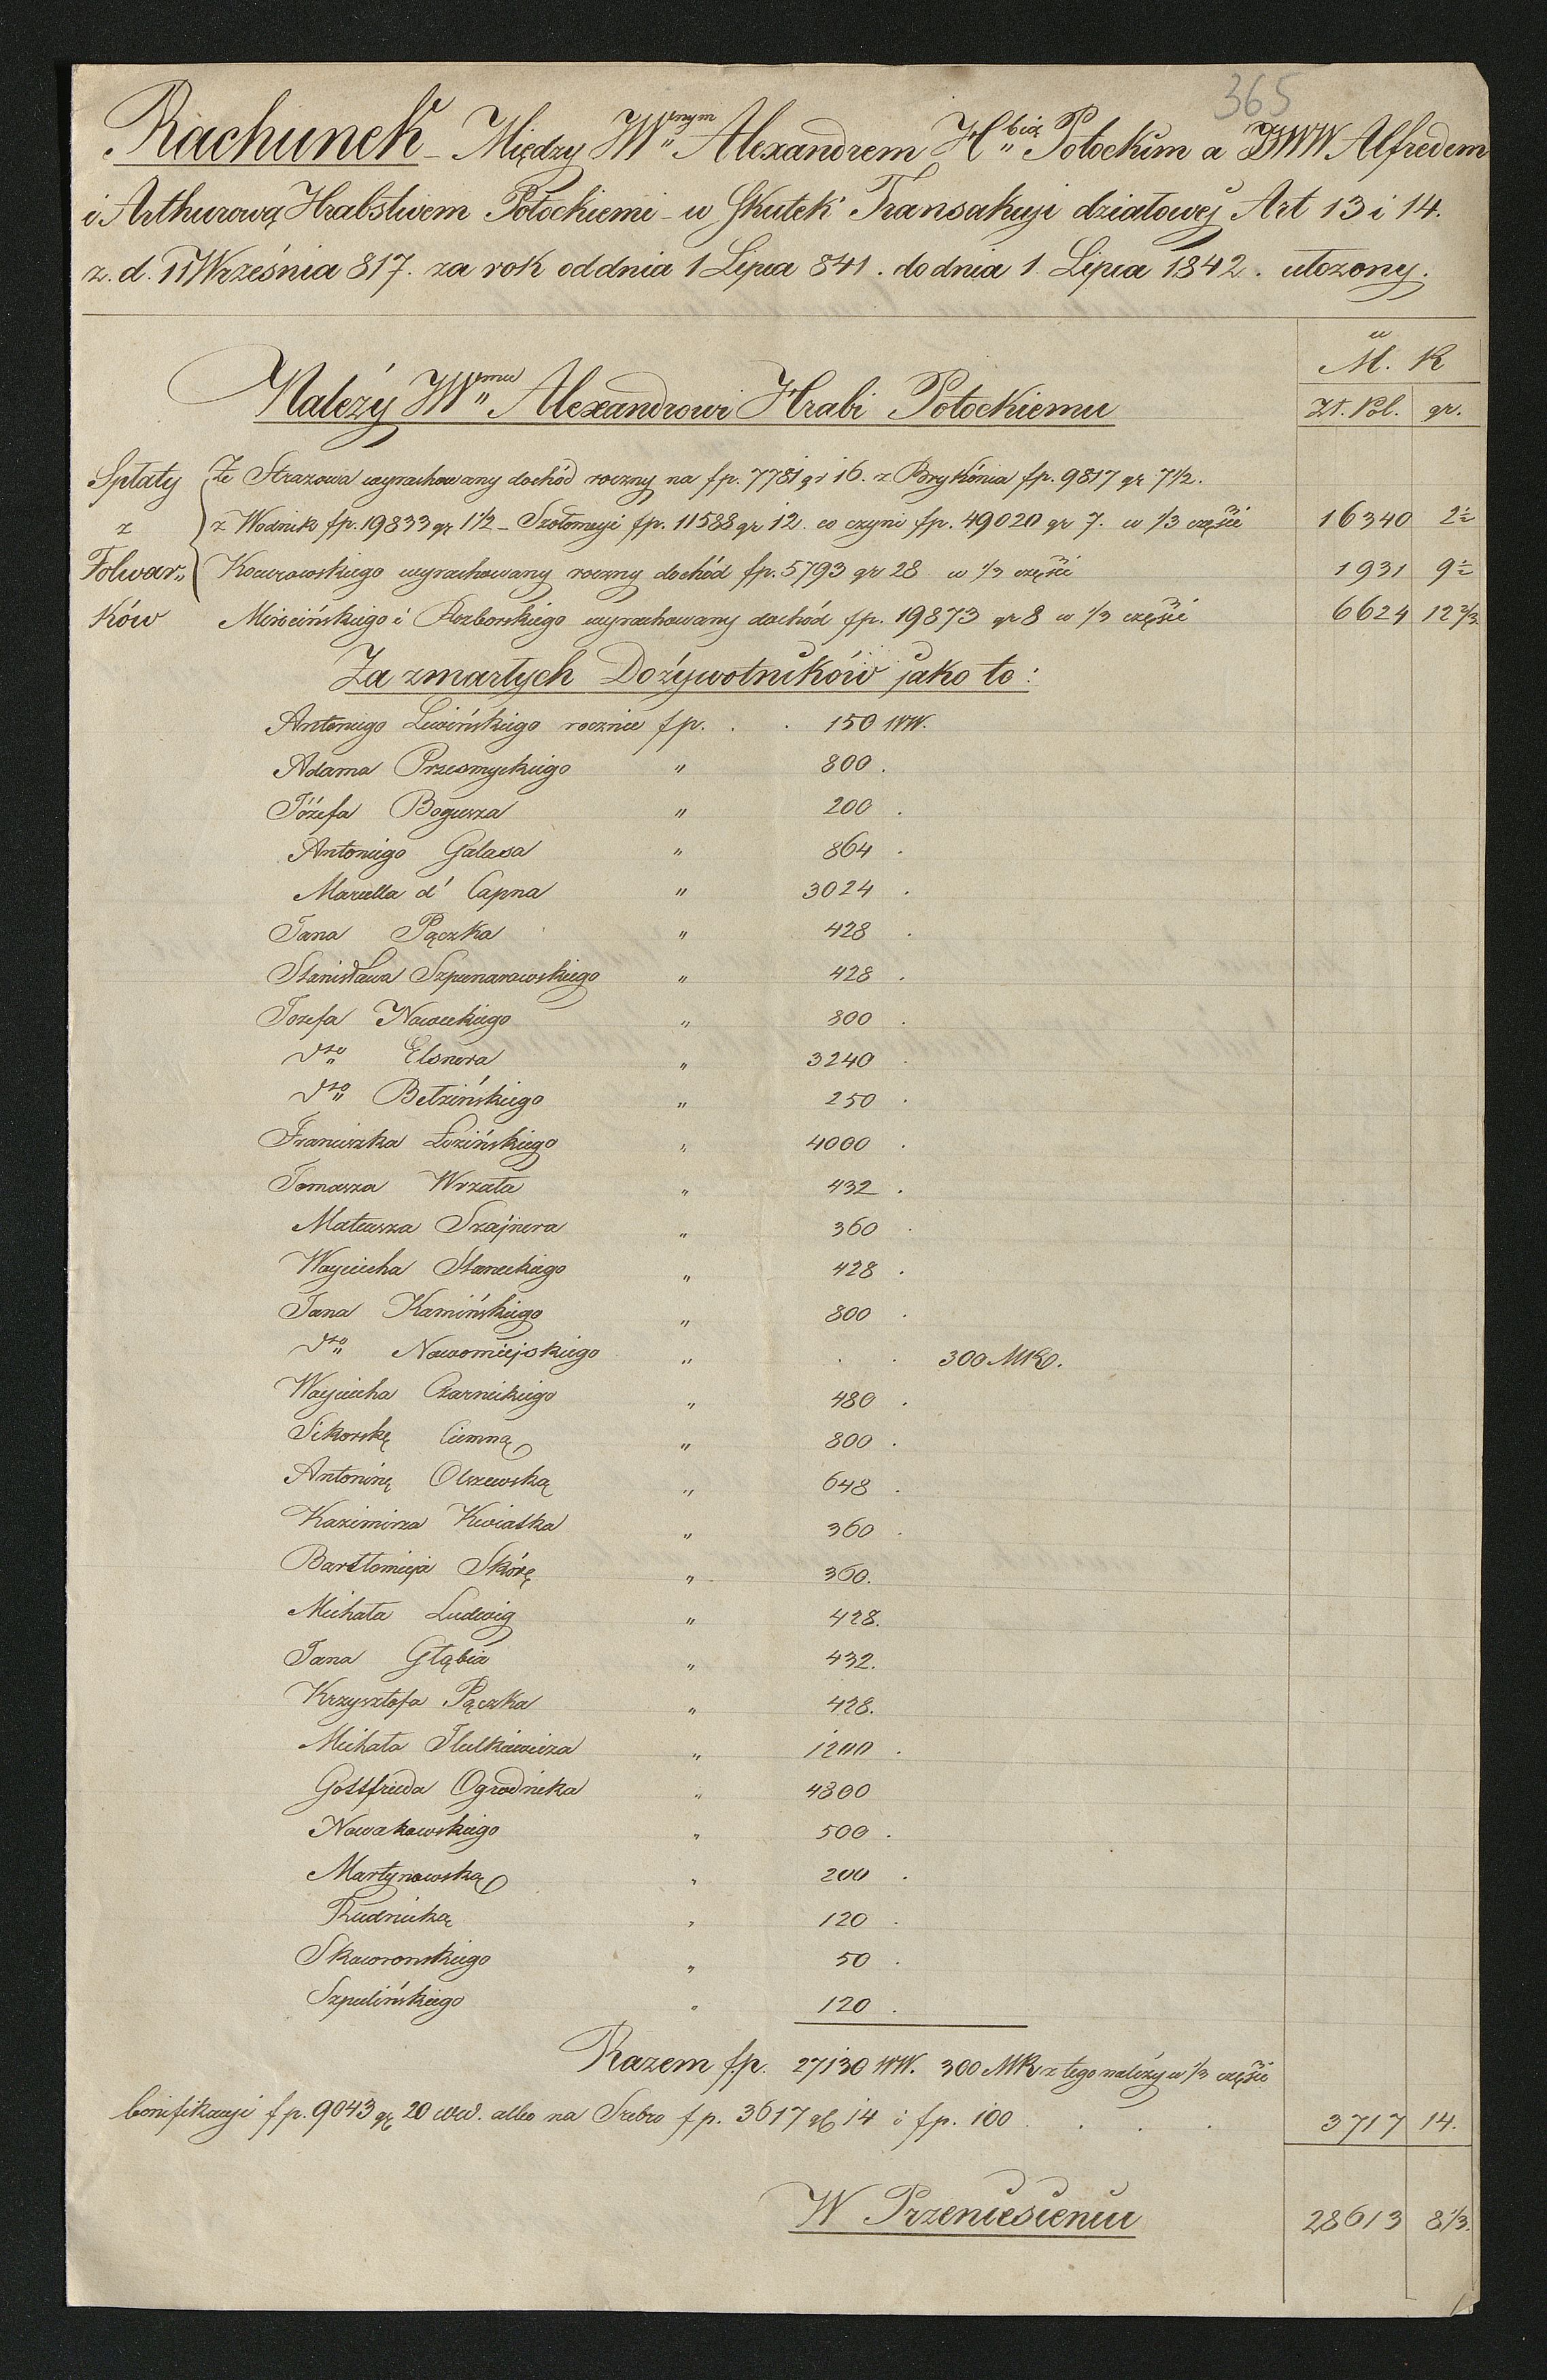 365
Rachunek - Między JW"nym Alexandrem H"bią Potockim a JJWW Alfredem
i Arthurową Hrabstwem Potockiemi - w Skutek Transakcyi działowej Art 13 i 14.
z. d. 11 Września 817. za rok od dnia 1 Lipca 841. do dnia 1. Lipca 1842. ułozony.
w
M. K
Należy JW"mu Alexandrowi Hrabi Potockiemu
Zł. Pol. gr.
Spłaty z Folwar„ ków
Ze Strazowa wyrachowany dochód roczny na fp. 7781 gr 16. z Brykónia fp. 9817 gr 7 1/2.
z Wodnik fp. 19833 gr 1 1/2 - Szołomyi fp. 11588 gr 12. co czyni fp. 49020 gr 7. w 1/3 części 16340 2 1/2
Kocurowskiego wyrachowany roczny dochód fp. 5793 gr 28 w 1/3 części 1931 9 1/2
Mirocińskiego i Rozborskiego wyrachowany dochód fp. 19873 gr 8 w 1/3 części 6624 12 2/3
Za zmarłych Dożywotników jako to:
Antoniego Liwińskiego rocznie fp. . . 150 WW.
Adama Przesmyckiego " 800 .
Józefa Bogusza " 200 .
Antoniego Galasa " 864 .
Marcella d' Capna " 3024 .
Jana Pączka " 428 .
Stanisława Szpunarowskiego " 428 .
Jozefa Noweckiego " 800 .
dto Elsnera " 3240 .
dto Bełzińskiego " 250 .
Franciszka Łozińskiego " 4000 .
Tomasza Wrzata " 432 .
Mateusza Szajnera " 360 .
Wojciecha Stareckiego " 428 .
Jana Kamińskiego " 800 .
dto Nowomiejskiego " . . 300 MK.
Wojciecha Czarneckiego " 480 .
Sikorskę Ciemną " 800 .
Antoninę Olszewską " 648 .
Kazimirza Kwiatka " 360 .
Bartłomieja Skórę " 360.
Michała Ludwig " 428.
Jana Głąbia " 432.
Krzysztofa Pączka " 428.
Michała Flulkiewicza " 1200 .
Gottfrieda Ogrodnika " 4800
Nowakowskiego " 500 .
Martynowską " 200 .
Rudnicką " 120 .
Skoworonskiego " 50 .
Szpulińskiego " 120 .
Razem fp. 27130 WW. 300 MK z tego należy w 1/3 części
bonifikacyi fp. 9043 gr 20 ww. albo na Srebro fp. 3617 gr 14 i fp. 100 . . . 3717 14.
W Przeniesieniu 28613 8 1/3.